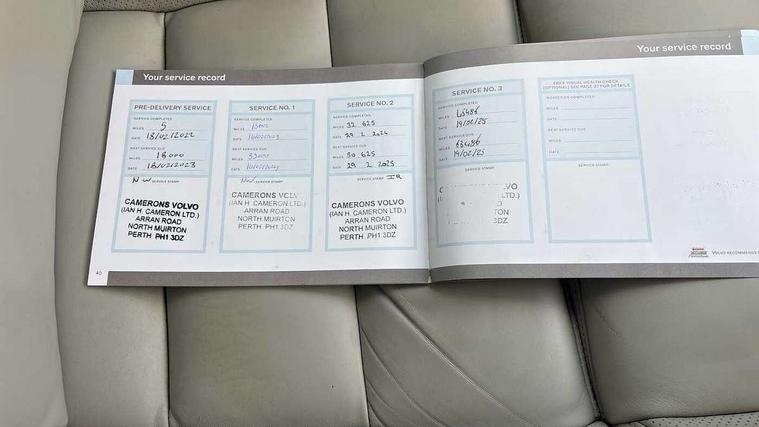 Your service record
PRE-DELIVERY SERVICE
SERVICE COMPLETED
MILES 5
DATE 18/02/2022
NEXT SERVICE DUE
MILES 18000
DATE 18/02/2023
SERVICE STAMP
CAMERONS VOLVO
(IAN H. CAMERON LTD.)
ARRAN ROAD
NORTH MUIRTON
PERTH PH1 3DZ
40
SERVICE NO. 1
SERVICE COMPLETED
MILES
DATE
NEXT SERVICE DUE
MILES
DATE
SERVICE STAMP
CAMERONS VOLV
(IAN H. CAMERON LTD.)
ARRAN ROAD
NORTH MUIRTON
PERTH PH1 3DZ
SERVICE NO. 2
SERVICE COMPLETED
MILES 32 625
DATE 29 2 2024
NEXT SERVICE DUE
MILES 50 625
DATE 29 2 2025
SERVICE STAMP
CAMERONS VOLVO
(IAN H. CAMERON LTD.)
ARRAN ROAD
NORTH MUIRTON
PERTH PH1 3DZ
Your service record
SERVICE NO. 3
SERVICE COMPLETED
MILES
DATE 19/02/25
NEXT SERVICE DUE
MILES
DATE 19/02/25
SERVICE STAMP
C VO
LTD.)
D
TON
3DZ
FREE VISUAL HEALTH CHECK
(OPTIONAL) SEE PAGE 37 FOR DETAILS
INSPECTION COMPLETED
MILES
DATE
NEXT SERVICE DUE
MILES
DATE
SERVICE STAMP
VOLVO RECOMMENDS